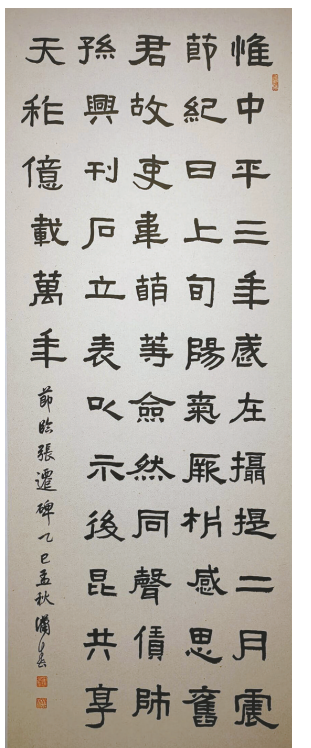 惟中平三年歲在攝提二月震
節紀日上旬陽氣厥析感思舊
君故吏韋萌等僉然同聲賃師
孫興刊石立表以示後昆共享
天祚億載萬年
節臨張遷碑乙巳孟秋